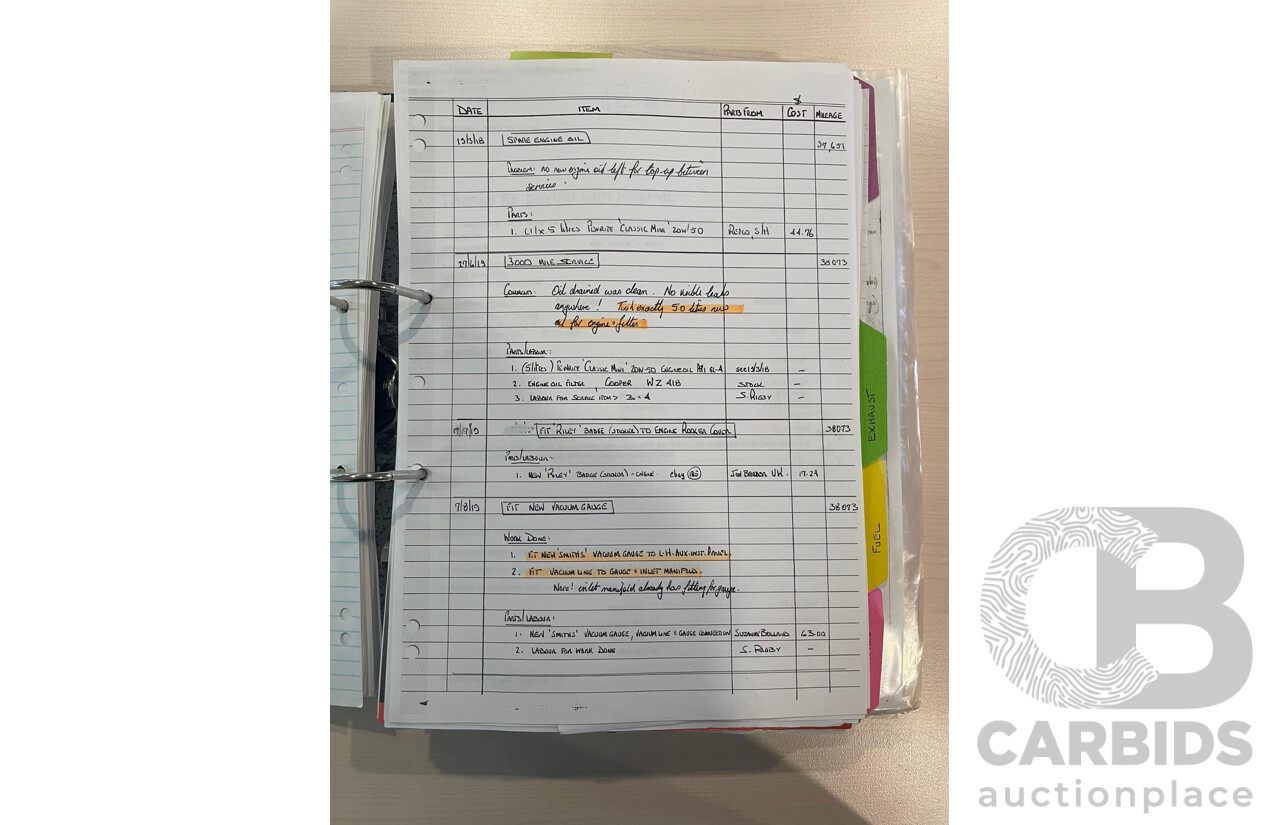 $
DATE ITEM PARTS FROM COST MILEAGE
13/3/18 SPARE ENGINE OIL 37,651
PROBLEM: NO new engine oil left for top-up between
service.
PARTS:
1. (1) x 5 litres PENRITE 'CLASSIC MINI' 20W-50 REPCO, S/H 44.76
27/6/19 3000 MILE SERVICE 38073
COMMENT: Oil drained was clean. No visible leaks
anywhere! Took exactly 5.0 litres new
oil for engine + filter
PARTS/LABOUR:
1. (5 litres) PENRITE 'CLASSIC MINI' 20W-50 ENGINE OIL see 13/3/18 —
2. ENGINE OIL FILTER, COOPER WZ 41B STOCK —
3. LABOUR FOR SERVICE ITEMS 3 + 4 S. RIGBY —
FIT 'RILEY' BADGE (STICKER) TO ENGINE ROCKER COVER 38073
PARTS/LABOUR:
1. NEW 'RILEY' BADGE (STICKER) - ENGINE ebay UK. 17.24
7/8/19 FIT NEW VACUUM GAUGE 38073
WORK DONE:
1. FIT NEW 'SMITHS' VACUUM GAUGE TO L-H-AUX-INST. PANEL.
2. FIT VACUUM LINE TO GAUGE & INLET MANIFOLD.
NOTE! inlet manifold already has fitting for gauge.
PARTS/LABOUR:
1. NEW 'SMITHS' VACUUM GAUGE, VACUUM LINE & GAUGE CONNECTION SUZANNE BOLLAND 63.00
2. LABOUR FOR WORK DONE S. RIGBY —
EXHAUST
FUEL
CB
CARBIDS
auctionplace